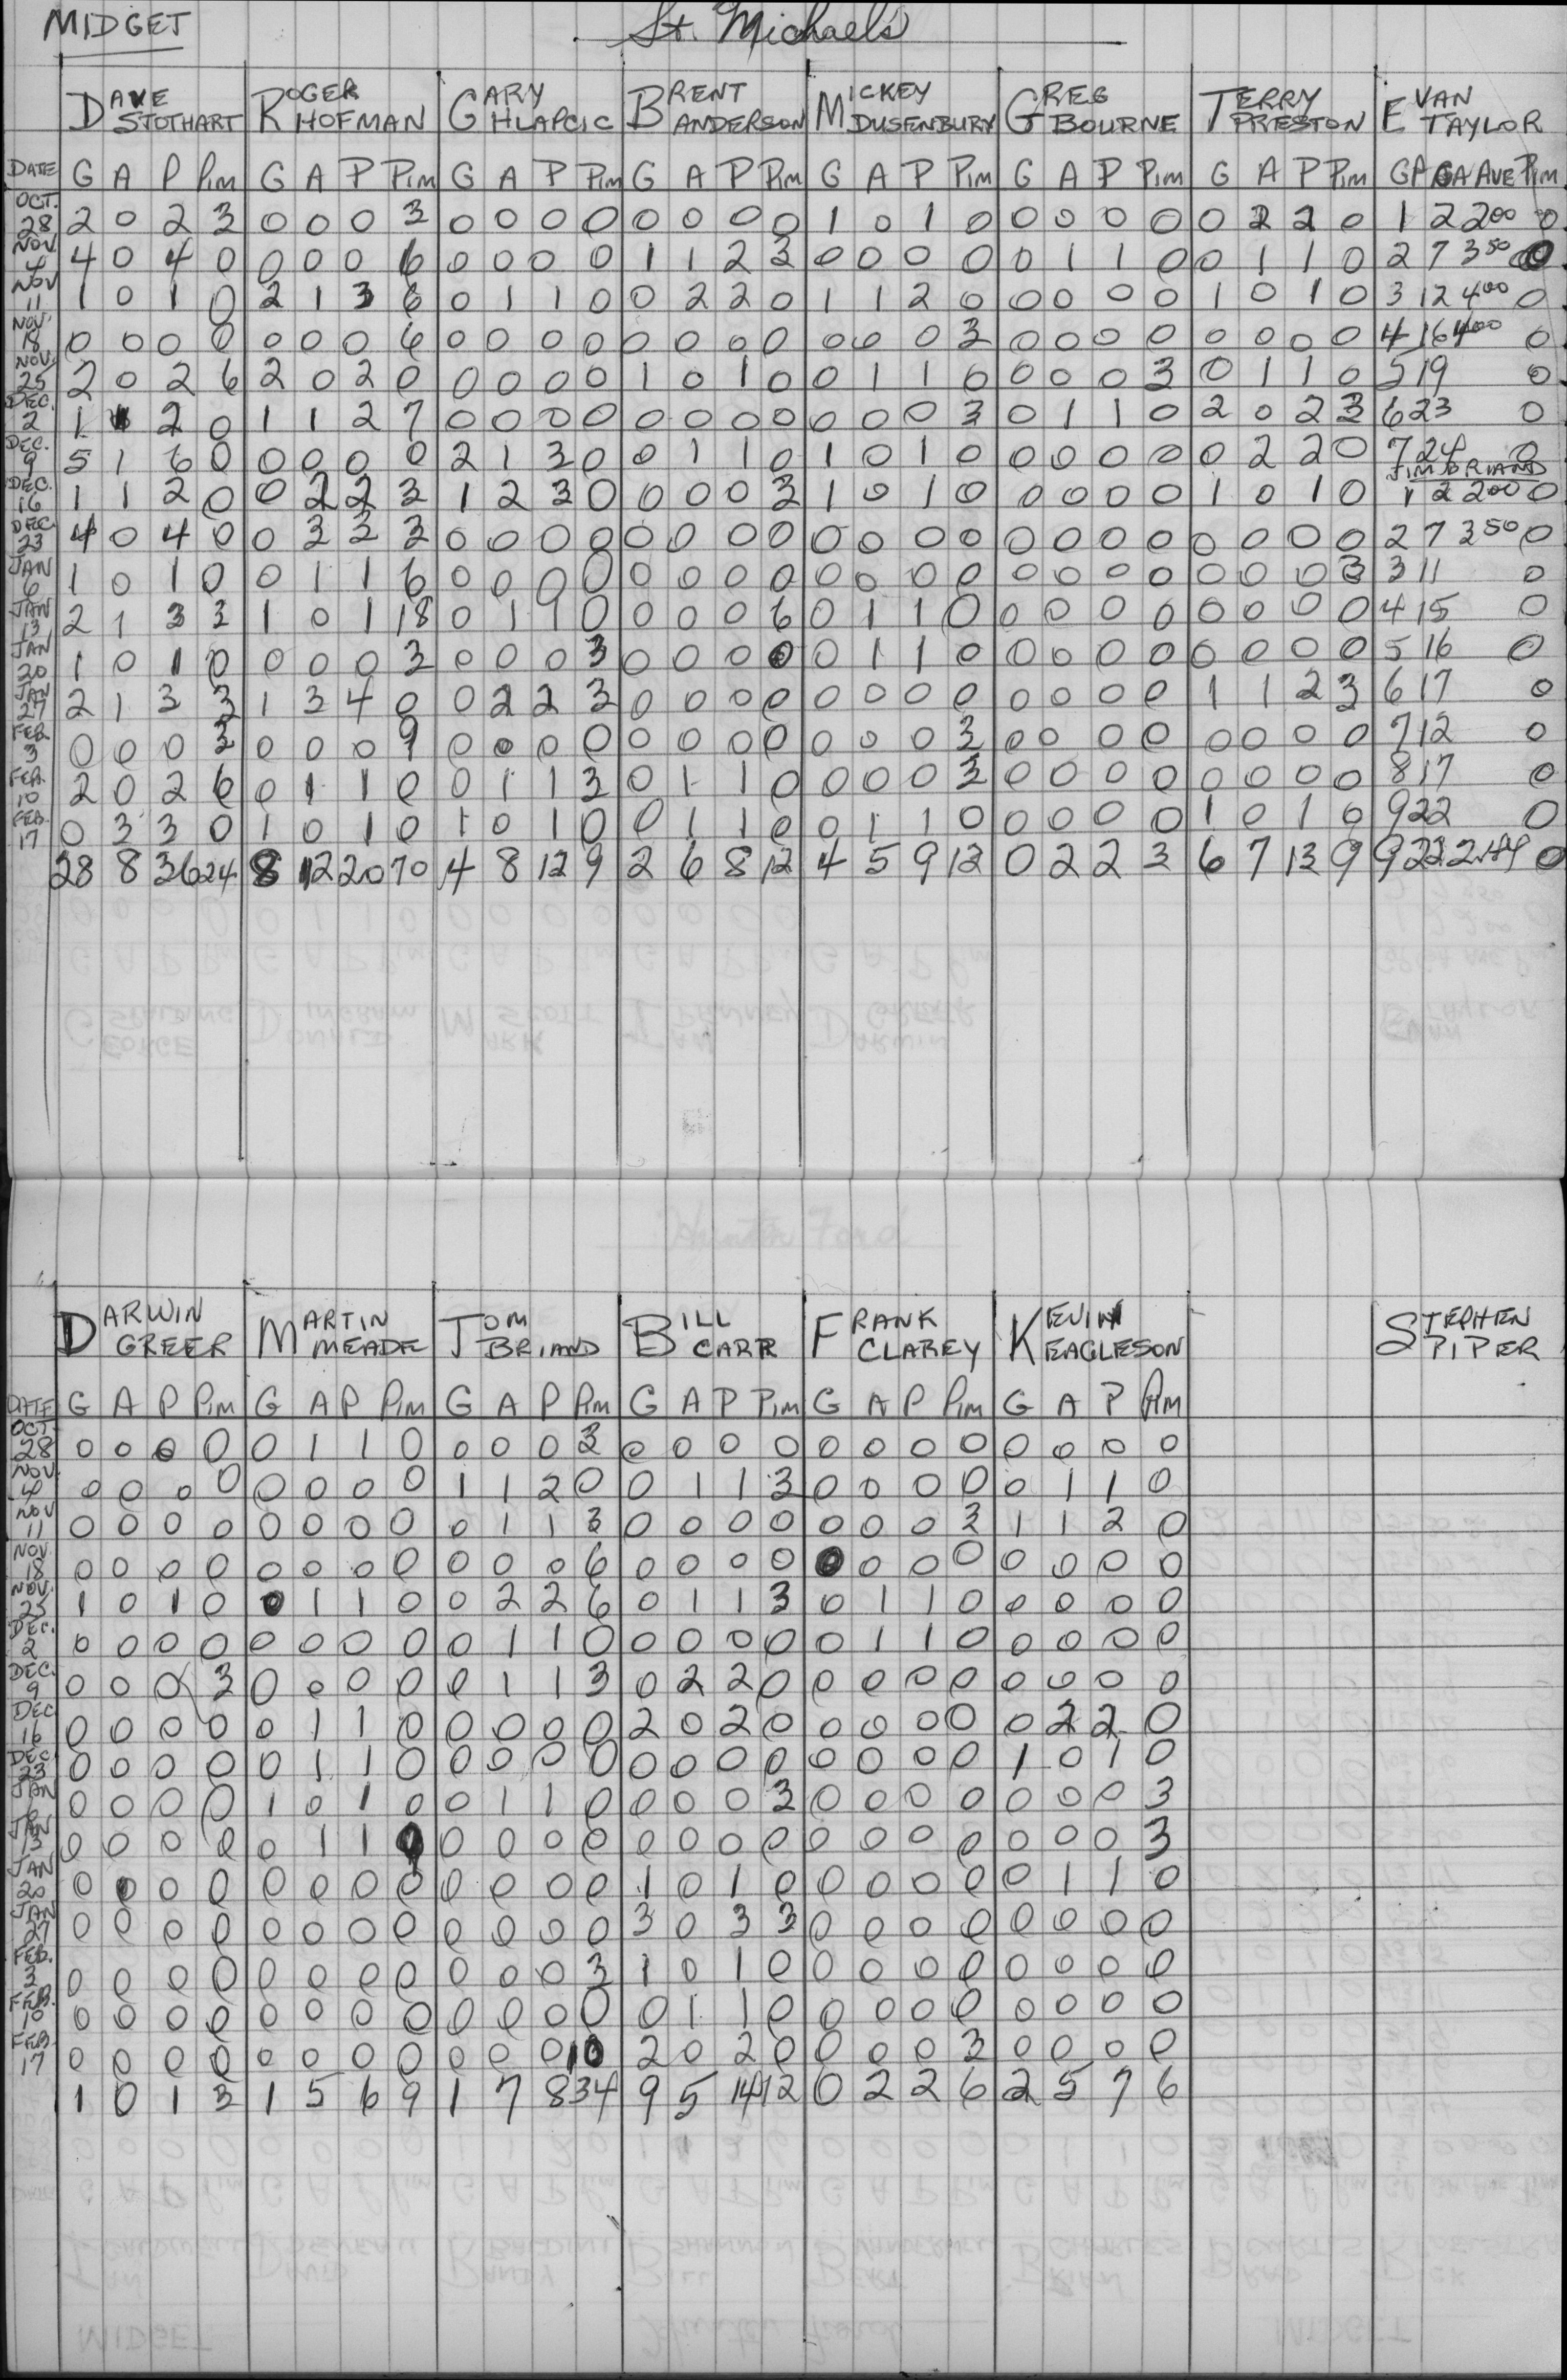 MIDGET
St. Michaels
DAVE STOTHART ROGER HOFMAN GARY HLAPCIC BRENT ANDERSON MICKEY DUSENBURY GREG BOURNE TERRY PRESTON EVAN TAYLOR
DATE G A P Pim G A P Pim G A P Pim G A P Pim G A P Pim G A P Pim G A P Pim GP GA AVE Pim
OCT. 28 2 0 2 3 0 0 0 3 0 0 0 0 0 0 0 0 1 0 1 0 0 0 0 0 0 2 2 0 1 2 2.00 0
NOV 4 4 0 4 0 0 0 0 6 0 0 0 0 1 1 2 3 0 0 0 0 0 1 1 0 0 1 1 0 2 7 3.50 0
NOV 11 1 0 1 0 2 1 3 6 0 1 1 0 0 2 2 0 1 1 2 0 0 0 0 0 1 0 1 0 3 12 4.00 0
NOV 18 0 0 0 0 0 0 0 6 0 0 0 0 0 0 0 0 0 0 0 3 0 0 0 0 0 0 0 0 4 16 4.00 0
NOV. 25 2 0 2 6 2 0 2 0 0 0 0 0 1 0 1 0 0 1 1 0 0 0 0 3 0 1 1 0 5 19 0
DEC. 2 1 1 2 0 1 1 2 7 0 0 0 0 0 0 0 0 0 0 0 3 0 1 1 0 2 0 2 3 6 23 0
DEC. 9 5 1 6 0 0 0 0 0 2 1 3 0 0 1 1 0 1 0 1 0 0 0 0 0 0 2 2 0 7 24 0
JIM BRIAND
DEC. 16 1 1 2 0 0 2 2 3 1 2 3 0 0 0 0 3 1 0 1 0 0 0 0 0 1 0 1 0 1 2 2.00 0
DEC 23 4 0 4 0 0 3 3 3 0 0 0 0 0 0 0 0 0 0 0 0 0 0 0 0 0 0 0 0 2 7 3.50 0
JAN 6 1 0 1 0 0 1 1 6 0 0 0 0 0 0 0 0 0 0 0 0 0 0 0 0 0 0 0 3 3 11 0
JAN 13 2 1 3 3 1 0 1 18 0 1 1 0 0 0 0 6 0 1 1 0 0 0 0 0 0 0 0 0 4 15 0
JAN 20 1 0 1 0 0 0 0 3 0 0 0 3 0 0 0 0 0 1 1 0 0 0 0 0 0 0 0 0 5 16 0
JAN 27 2 1 3 3 1 3 4 0 0 2 2 3 0 0 0 0 0 0 0 0 0 0 0 0 1 1 2 3 6 17 0
FEB 3 0 0 0 3 0 0 0 9 0 0 0 0 0 0 0 0 0 0 0 3 0 0 0 0 0 0 0 0 7 12 0
FEB. 10 2 0 2 6 0 1 1 0 0 1 1 3 0 1 1 0 0 0 0 3 0 0 0 0 0 0 0 0 8 17 0
FEB. 17 0 3 3 0 1 0 1 0 1 0 1 0 0 1 1 0 0 1 1 0 0 0 0 0 1 0 1 0 9 22 0
28 8 36 24 8 12 20 70 4 8 12 9 2 6 8 12 4 5 9 12 0 2 2 3 6 7 13 9 9 22 2.44 0
DARWIN GREER MARTIN MEADE TOM BRIAND BILL CARR FRANK CLAREY KEVIN EAGLESON STEPHEN PIPER
DATE G A P Pim G A P Pim G A P Pim G A P Pim G A P Pim G A P Pim
OCT. 28 0 0 0 0 0 1 1 0 0 0 0 3 0 0 0 0 0 0 0 0 0 0 0 0
NOV. 4 0 0 0 0 0 0 0 0 1 1 2 0 0 1 1 3 0 0 0 0 0 1 1 0
NOV 11 0 0 0 0 0 0 0 0 0 1 1 3 0 0 0 0 0 0 0 3 1 1 2 0
NOV. 18 0 0 0 0 0 0 0 0 0 0 0 6 0 0 0 0 0 0 0 0 0 0 0 0
NOV. 25 1 0 1 0 0 1 1 0 0 2 2 6 0 1 1 3 0 1 1 0 0 0 0 0
DEC. 2 0 0 0 0 0 0 0 0 0 1 1 0 0 0 0 0 0 1 1 0 0 0 0 0
DEC. 9 0 0 0 3 0 0 0 0 0 1 1 3 0 2 2 0 0 0 0 0 0 0 0 0
DEC 16 0 0 0 0 0 1 1 0 0 0 0 0 2 0 2 0 0 0 0 0 0 2 2 0
DEC. 23 0 0 0 0 0 1 1 0 0 0 0 0 0 0 0 0 0 0 0 0 1 0 1 0
JAN 6 0 0 0 0 1 0 1 0 0 1 1 0 0 0 0 3 0 0 0 0 0 0 0 3
JAN 13 0 0 0 0 0 1 1 9 0 0 0 0 0 0 0 0 0 0 0 0 0 0 0 3
JAN 20 0 0 0 0 0 0 0 0 0 0 0 0 1 0 1 0 0 0 0 0 0 1 1 0
JAN 27 0 0 0 0 0 0 0 0 0 0 0 0 3 0 3 3 0 0 0 0 0 0 0 0
FEB. 3 0 0 0 0 0 0 0 0 0 0 0 3 1 0 1 0 0 0 0 0 0 0 0 0
FEB. 10 0 0 0 0 0 0 0 0 0 0 0 0 0 1 1 0 0 0 0 0 0 0 0 0
FEB 17 0 0 0 0 0 0 0 0 0 0 0 10 2 0 2 0 0 0 0 3 0 0 0 0
1 0 1 3 1 5 6 9 1 7 8 34 9 5 14 12 0 2 2 6 2 5 7 6